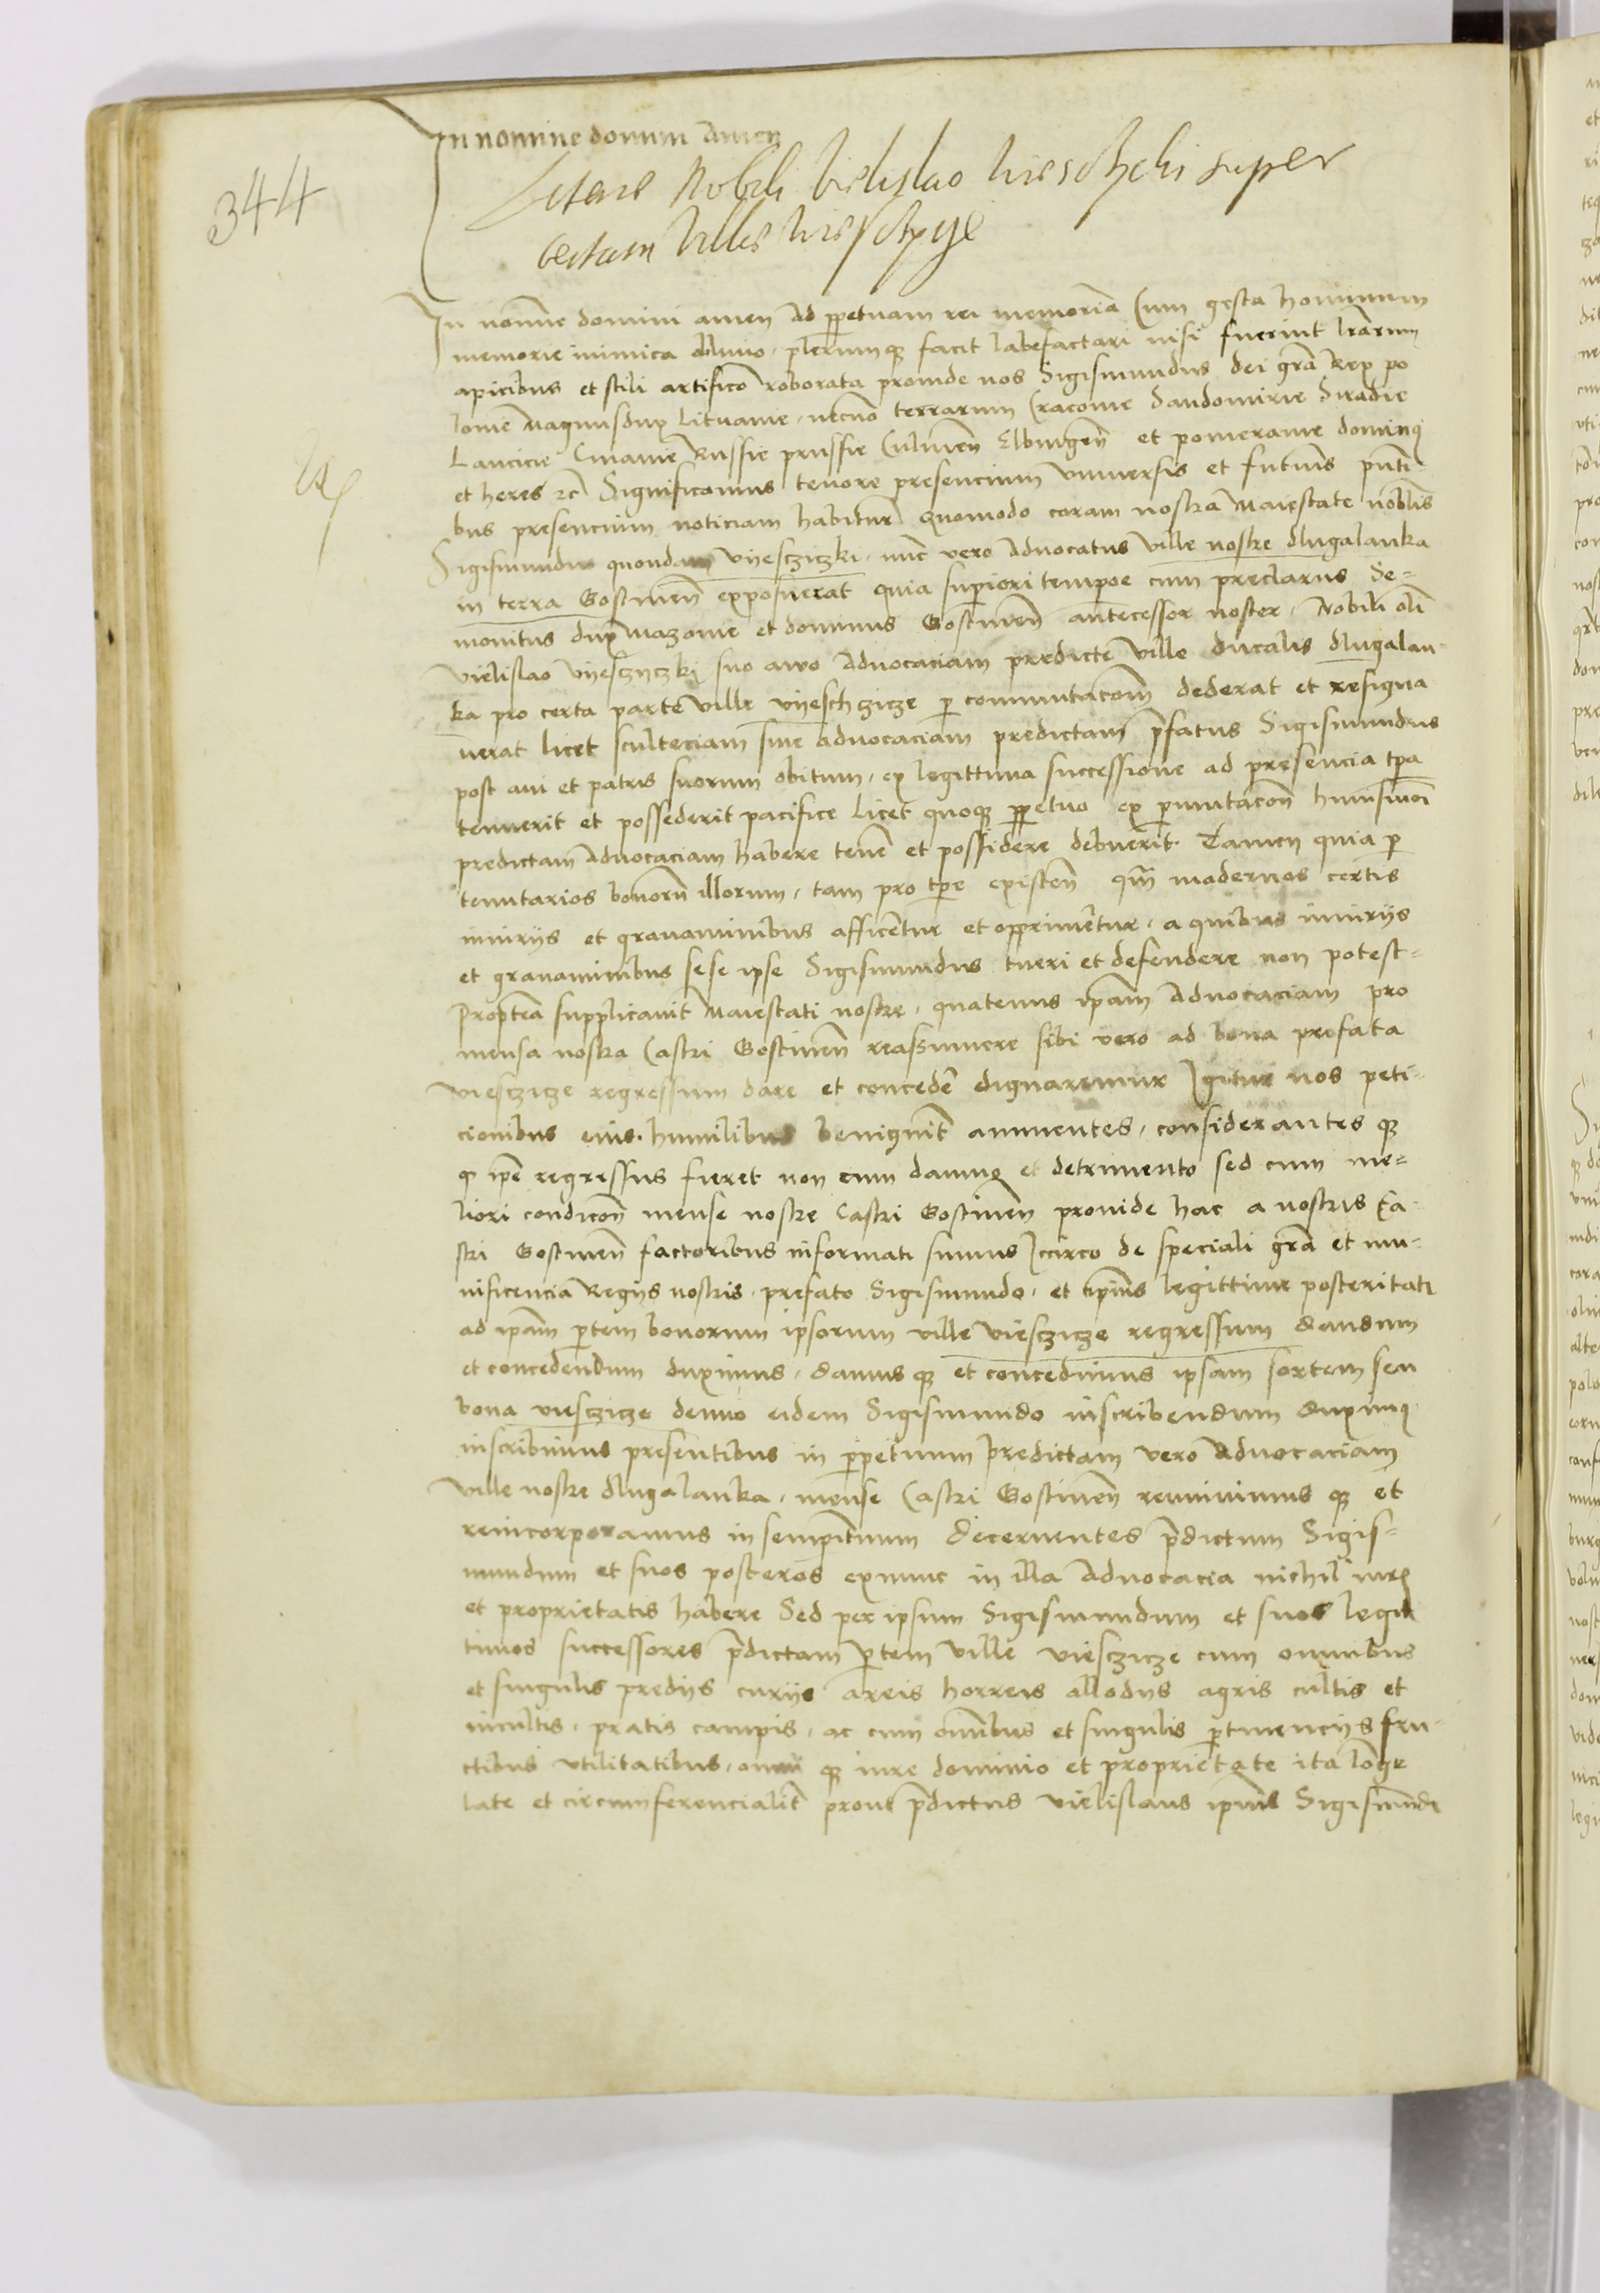 In nomine domini amen
344
Litere Nobili vielislao viesczhcki super
certam villes viesczhycze
In nomine domini amen Ad ppetuam rei memoriā Cum gesta hominum
memorie inimica oblivio plerumq facit labefactari nisi fuerint lrarum
apicibus et stili artificō roborata proinde nos Sigismundus dei grā Rex po
lonie Magnusdux Lituanie necnō terrarum Cracovie Sandomirie Siradie
Lancicie Cuiavie Russie prussie Culmeñ Elbingeñ et pomeranie dominq
et heres zc̄ Significamus tenore presencium universis et futuris pnti
bus presencium noticiam habitur̄ quomodo coram nostra Maiestate nobilis
Sigismundus quondam vyesczıczki nūc vero Advocatus ville nostre dlugalanka
in terra Gostineñ exposuerat quia superiori tempore cum preclarus Se-
movitus dux Mazovie et dominus Gostineñ antecessor noster Nobili oli
vielislao vyesczyczki suo avo Advocaciam predicte ville ducalis dlugalan
ka pro certa parte ville vyeschzicze p commutacom̄ dederat et resigna
verat licet sculteciam sive advocaciam predictam pfatus Sigismundus
post avi et patris suorum obitum ex legittima successione ad presencia tpa
tenuerit et possederit pacifice licet quoq ppetuo ex pmutacoñ huiusmoi
predictam Advocaciam habere tenē et possidere debuerit Tamen quia p
tenutarios bonorū illorum tam pro tpe existeñ qm̄ modernos certis
iniuriis et gravaminibus afficētur et opprimētur a quibus iniuriis
et gravaminibus sese ipse Sigismundus tueri et defendere non potest
Proptea supplicavit Maiestati nostre quatenus ipam Advocaciam pro
mensa nostra Castri Gostineñ reassumere sibi vero ad bona prefata
viesczicze regressum dare et concedē dignaremur Igitur nos peti
cionibus eius humilibus benignit annuentes considerantes q
q ipe regressus fieret non cum damno et detrimento sed cum me-
liori condicoñ mense nostre Castri Gostineñ provide hac a nostris Ca
stri Gostineñ factoribus informati sumus Iccirco de speciali grā et mu-
nificencia Regiis nostris prefato Sigismundo et ipius legittime posteritati
ad ipam ptem bonorum ipsorum ville viesczicze regressum dandum
et concedendum duximus damus q et concedimus ipsam sortem seu
bona viesczicze denuo eidem Sigismundo inscribendum duximq
inscribimus presentibus in ppetuum predictam vero Advocaciam
ville nostre dlugalanka mense Castri Gostineñ reunimus q et
reincorporamus in sempitnum decernentes pdictum Sigis-
mundum et suos posteros exnunc in illa Advocacia nichil iuris
et proprietatis habere Sed per ipsum Sigismundum et suos legit
timos successores pdictam ptem ville viesczicze cum omnibus
et singulis prediis curiis areis horreis allodiis agris cultis et
incultis pratis campis ac cum omībus et singulis ptinenciis fru-
ctibus utilitatibus omni q iure dominio et proprietate ita lōge
late et circumferencialit prout pdictus vielislaus ipius Sigismundi